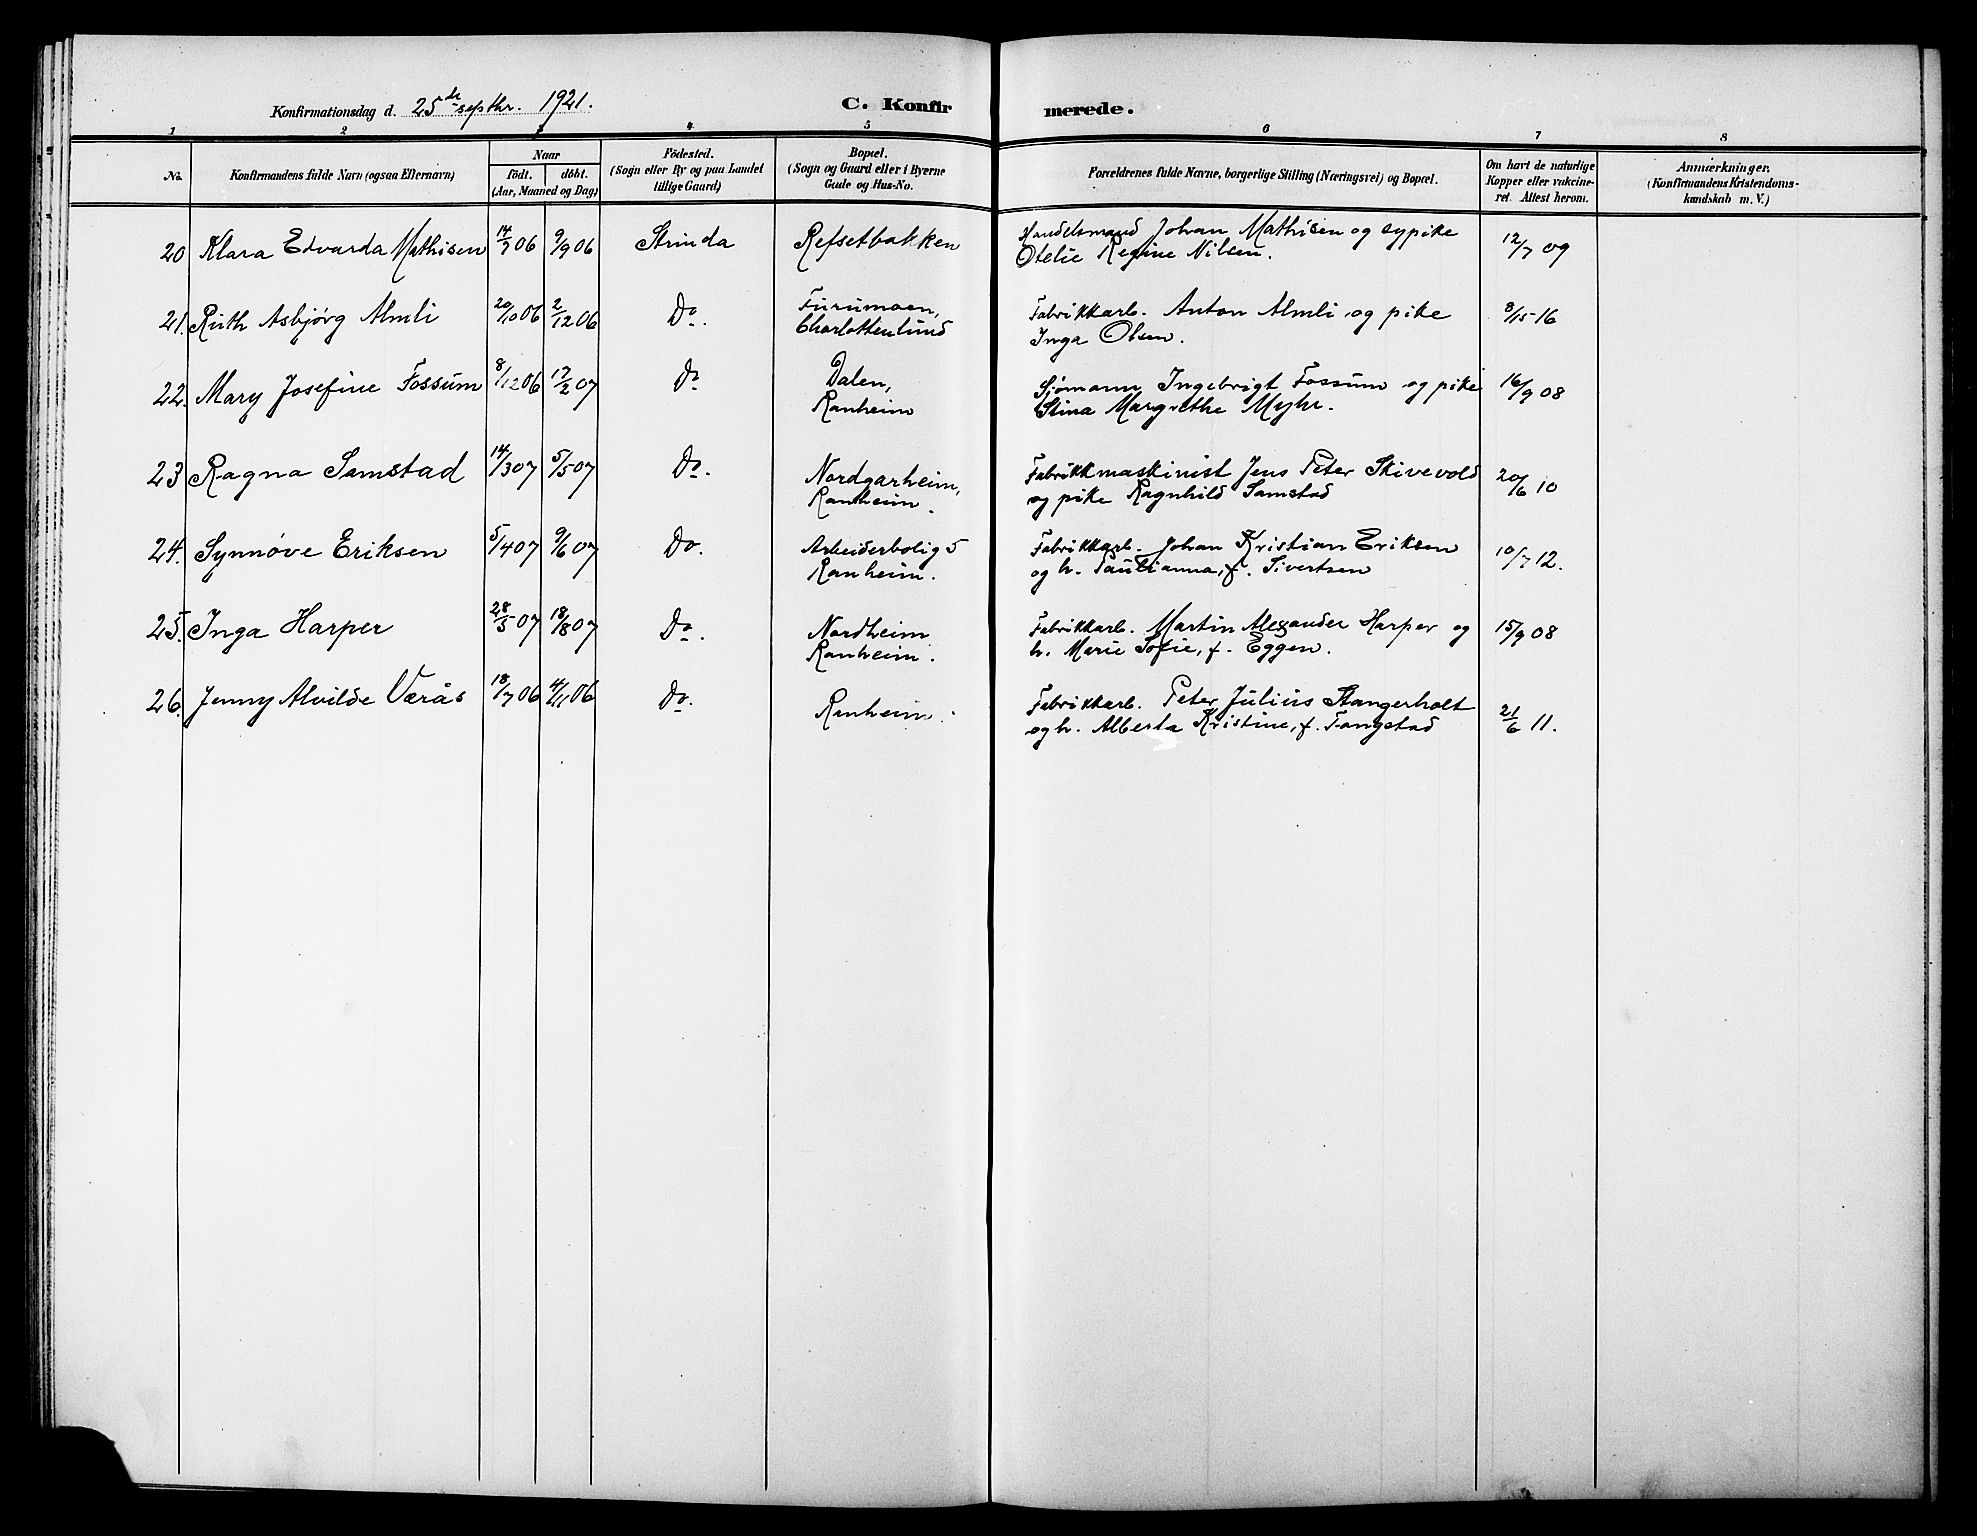 Konfirmationsdag d. 25de septbr. 1921.
C. Konfirmerede.
1 2 3 4 5 6 7 8
No.
Konfirmandens fulde Navn (ogsaa Efternavn)
Naar
födt. döbt.
(Aar, Maaned og Dag)
Födested.
(Sogn eller By og paa Landet
tillige Gaard)
Bopæl.
(Sogn og Gaard eller i Byerne
Gade og Hus-No.
Forældrenes fulde Navne, borgerlige Stilling (Næringsvei) og Bopæl.
Om havt de naturlige
Kopper eller vakcine-
ret. Attest herom.
Anmærkninger.
(Konfirmandens Kristendoms-
kundskab m. V.)
20 Klara Edvarda Mathisen 14/7 06 9/9 06 Strinda Refsetbakken
Handelsmand Johan Mathisen og sypike
Otelie Regine Nilsen.
12/7 09
21. Ruth Asbjørg Almli 20/10 06 2/12 06 Do.
Furumoen,
Charlottenlund
Fabrikkarb. Anton Almli og pike
Inga Olsen.
8/15 16
22. Mary Josefine Fossum 8/12 06 17/2 07 Do
Dalen,
Ranheim
Sjømann Ingebrigt Fossum og pike
Stina Margrethe Myhr.
16/9 08
23 Ragna Samstad 14/3 07 5/5 07 Do.
Nordgarheim,
Ranheim.
Fabrikkmaskinist Jens Peter Skivevold
og pike Ragnhild Samstad
20/6 10
24. Synnøve Eriksen 5/4 07 9/6 07 Do.
Arbeiderbolig 5
Ranheim.
Fabrikkarb. Johan Kristian Eriksen
og h. Paulianna, f. Sivertsen
10/7 12.
25. Inga Harper 28/5 07 18/8 07 Do.
Nordheim
Ranheim.
Fabrikkarb. Martin Alexander Harper og
h. Marie Sofie, f. Eggen.
15/9 08
26. Jenny Alvilde Værås 18/7 06 4/11 06 Do.
Ranheim.
Fabrikkarb. Peter Julius Stangerholt
og h. Alberta Kristine, f. Tangstad
21/6 11.